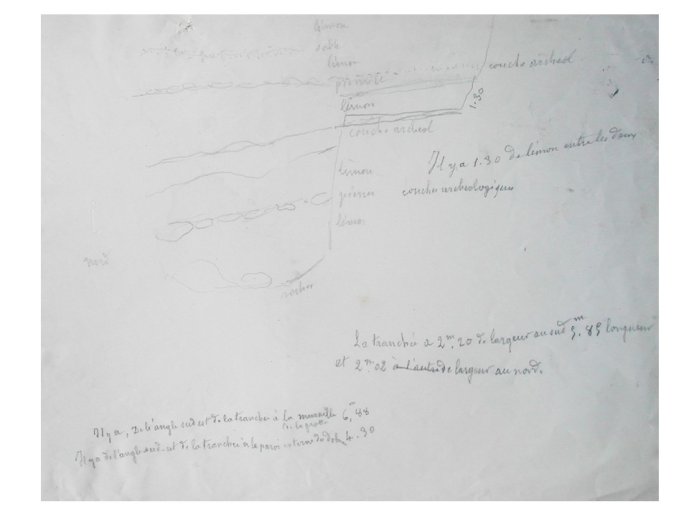 limon
sable
limon
couche archéol
limon
1.30
couche archeol
Il y a 1.30 de limon entre les deux
couches archeologiques
limon
pierres
limon
nord
rocher
La tranchée a 2m,20 de largeur au sud 5m.85 longueur
et 2m02 de largeur au nord.
Il y a, De l'angle sud est de la tranchée à la muraille 6m,88
de la grotte
Il y a de l'angle sud-est de la tranchée à la paroi interne du 4.30